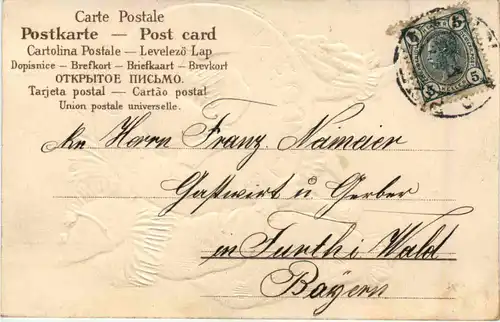 Carte Postale
Postkarte — Post card
Cartolina Postale — Levelezö Lap
Dopisnice — Brefkort — Briefkaart — Brevkort
ОТКРЫТОЕ ПИСЬМО.
Tarjeta postal — Cartão postal
Union postale universelle.
5 5
5 5
An Herrn Franz Naimaier
Gastwirt u Gerber
in Furth i Wald
Bayern